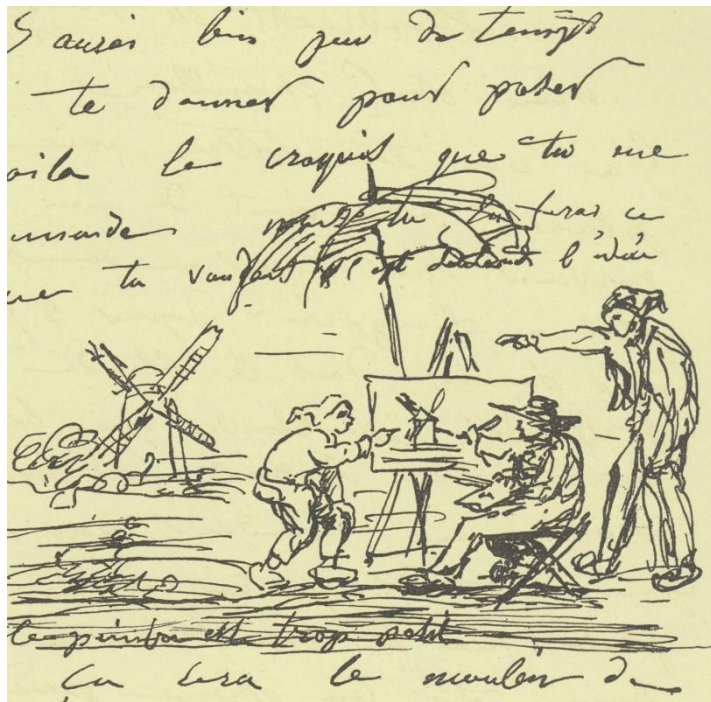 aurai bien peu de temps
te donner pour poser
oila le croquis que tu me
mande mais tu en feras ce
ue tu voudras c'est seulement l'idée
le peintre est trop petit
ça sera le moulin de